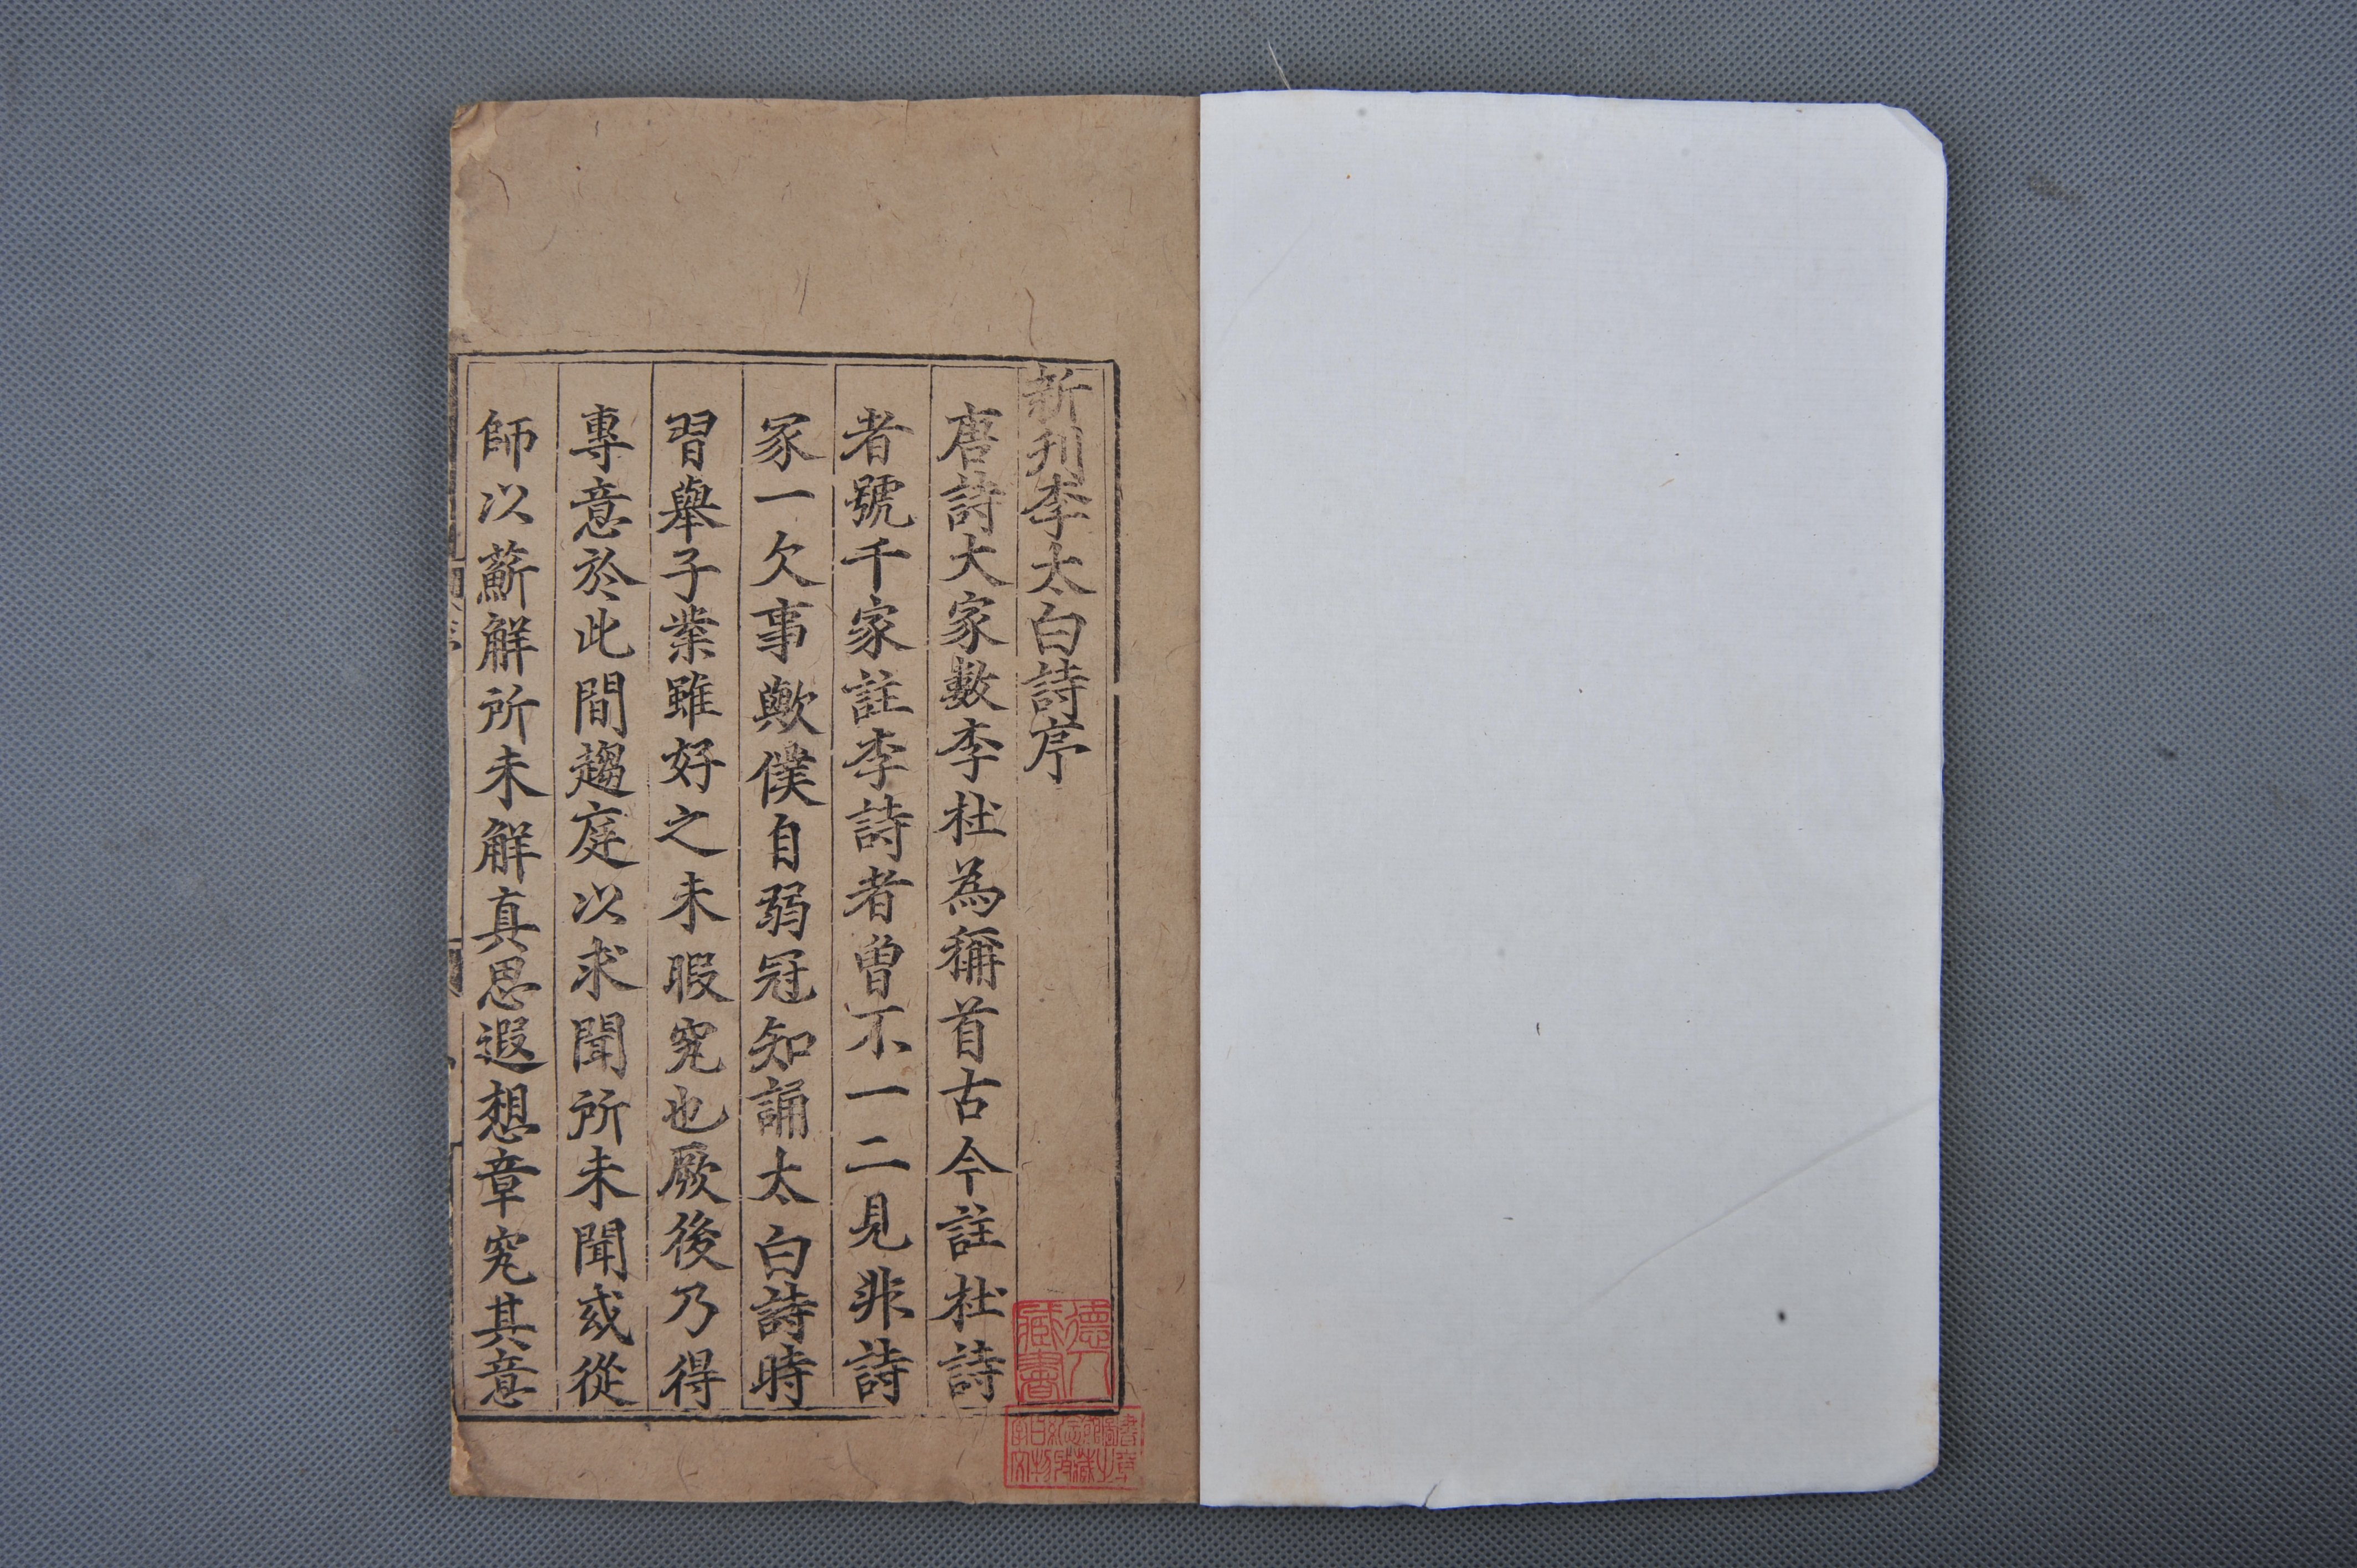 新刊李太白詩序
唐詩大家數李杜為稱首古今註杜詩
者號千家註李詩者曾不一二見非詩
家一欠事歟僕自弱冠知誦太白詩時
習舉子業雖好之未暇究也厥後乃得
專意於此間趨庭以求聞所未聞或從
師以蘄解所未解真思遐想章究其意
德人
藏書